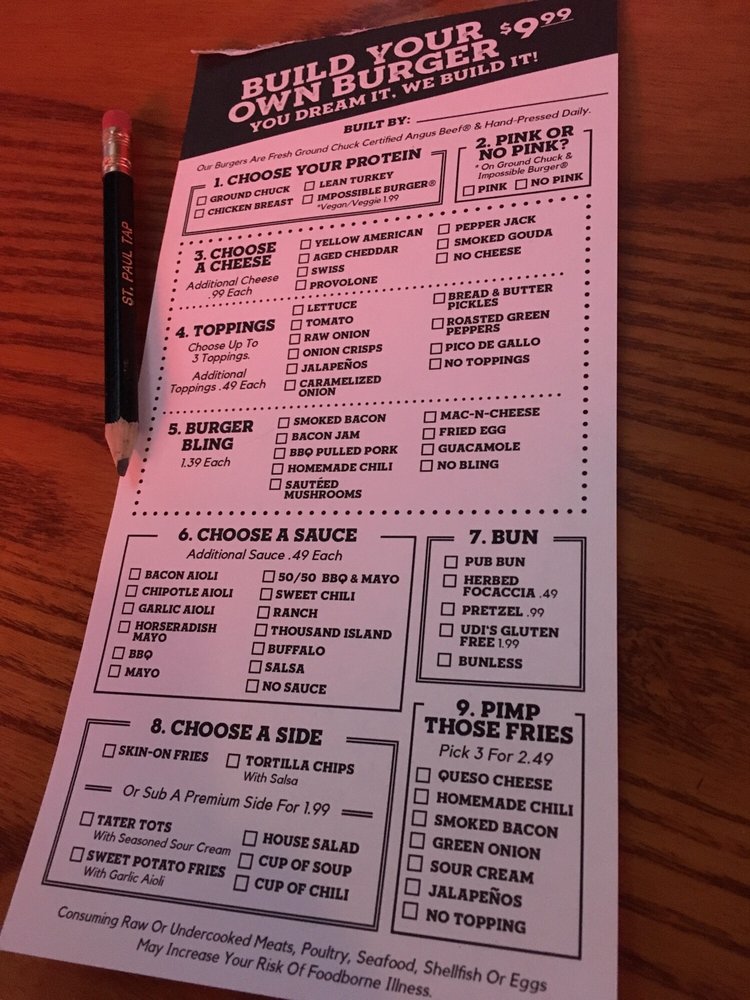 BUILD YOUR
OWN BURGER $9.99
YOU DREAM IT, WE BUILD IT!
BUILT BY:
Our Burgers Are Fresh Ground Chuck Certified Angus Beef® & Hand-Pressed Daily.
1. CHOOSE YOUR PROTEIN
GROUND CHUCK
CHICKEN BREAST
LEAN TURKEY
IMPOSSIBLE BURGER®
*Vegan/Veggie 1.99
2. PINK OR
NO PINK?
* On Ground Chuck &
Impossible Burger®
PINK NO PINK
3. CHOOSE
A CHEESE
Additional Cheese
.99 Each
YELLOW AMERICAN
AGED CHEDDAR
SWISS
PROVOLONE
PEPPER JACK
SMOKED GOUDA
NO CHEESE
4. TOPPINGS
Choose Up To
3 Toppings.
Additional
Toppings .49 Each
LETTUCE
TOMATO
RAW ONION
ONION CRISPS
JALAPEÑOS
CARAMELIZED
ONION
BREAD & BUTTER
PICKLES
ROASTED GREEN
PEPPERS
PICO DE GALLO
NO TOPPINGS
5. BURGER
BLING
1.39 Each
SMOKED BACON
BACON JAM
BBQ PULLED PORK
HOMEMADE CHILI
SAUTÉED
MUSHROOMS
MAC-N-CHEESE
FRIED EGG
GUACAMOLE
NO BLING
6. CHOOSE A SAUCE
Additional Sauce .49 Each
BACON AIOLI
CHIPOTLE AIOLI
GARLIC AIOLI
HORSERADISH
MAYO
BBQ
MAYO
50/50 BBQ & MAYO
SWEET CHILI
RANCH
THOUSAND ISLAND
BUFFALO
SALSA
NO SAUCE
7. BUN
PUB BUN
HERBED
FOCACCIA .49
PRETZEL .99
UDI'S GLUTEN
FREE 1.99
BUNLESS
8. CHOOSE A SIDE
SKIN-ON FRIES
TORTILLA CHIPS
With Salsa
Or Sub A Premium Side For 1.99
TATER TOTS
With Seasoned Sour Cream
SWEET POTATO FRIES
With Garlic Aioli
HOUSE SALAD
CUP OF SOUP
CUP OF CHILI
9. PIMP
THOSE FRIES
Pick 3 For 2.49
QUESO CHEESE
HOMEMADE CHILI
SMOKED BACON
GREEN ONION
SOUR CREAM
JALAPEÑOS
NO TOPPING
Consuming Raw Or Undercooked Meats, Poultry, Seafood, Shellfish Or Eggs
May Increase Your Risk Of Foodborne Illness.
ST. PAUL TAP